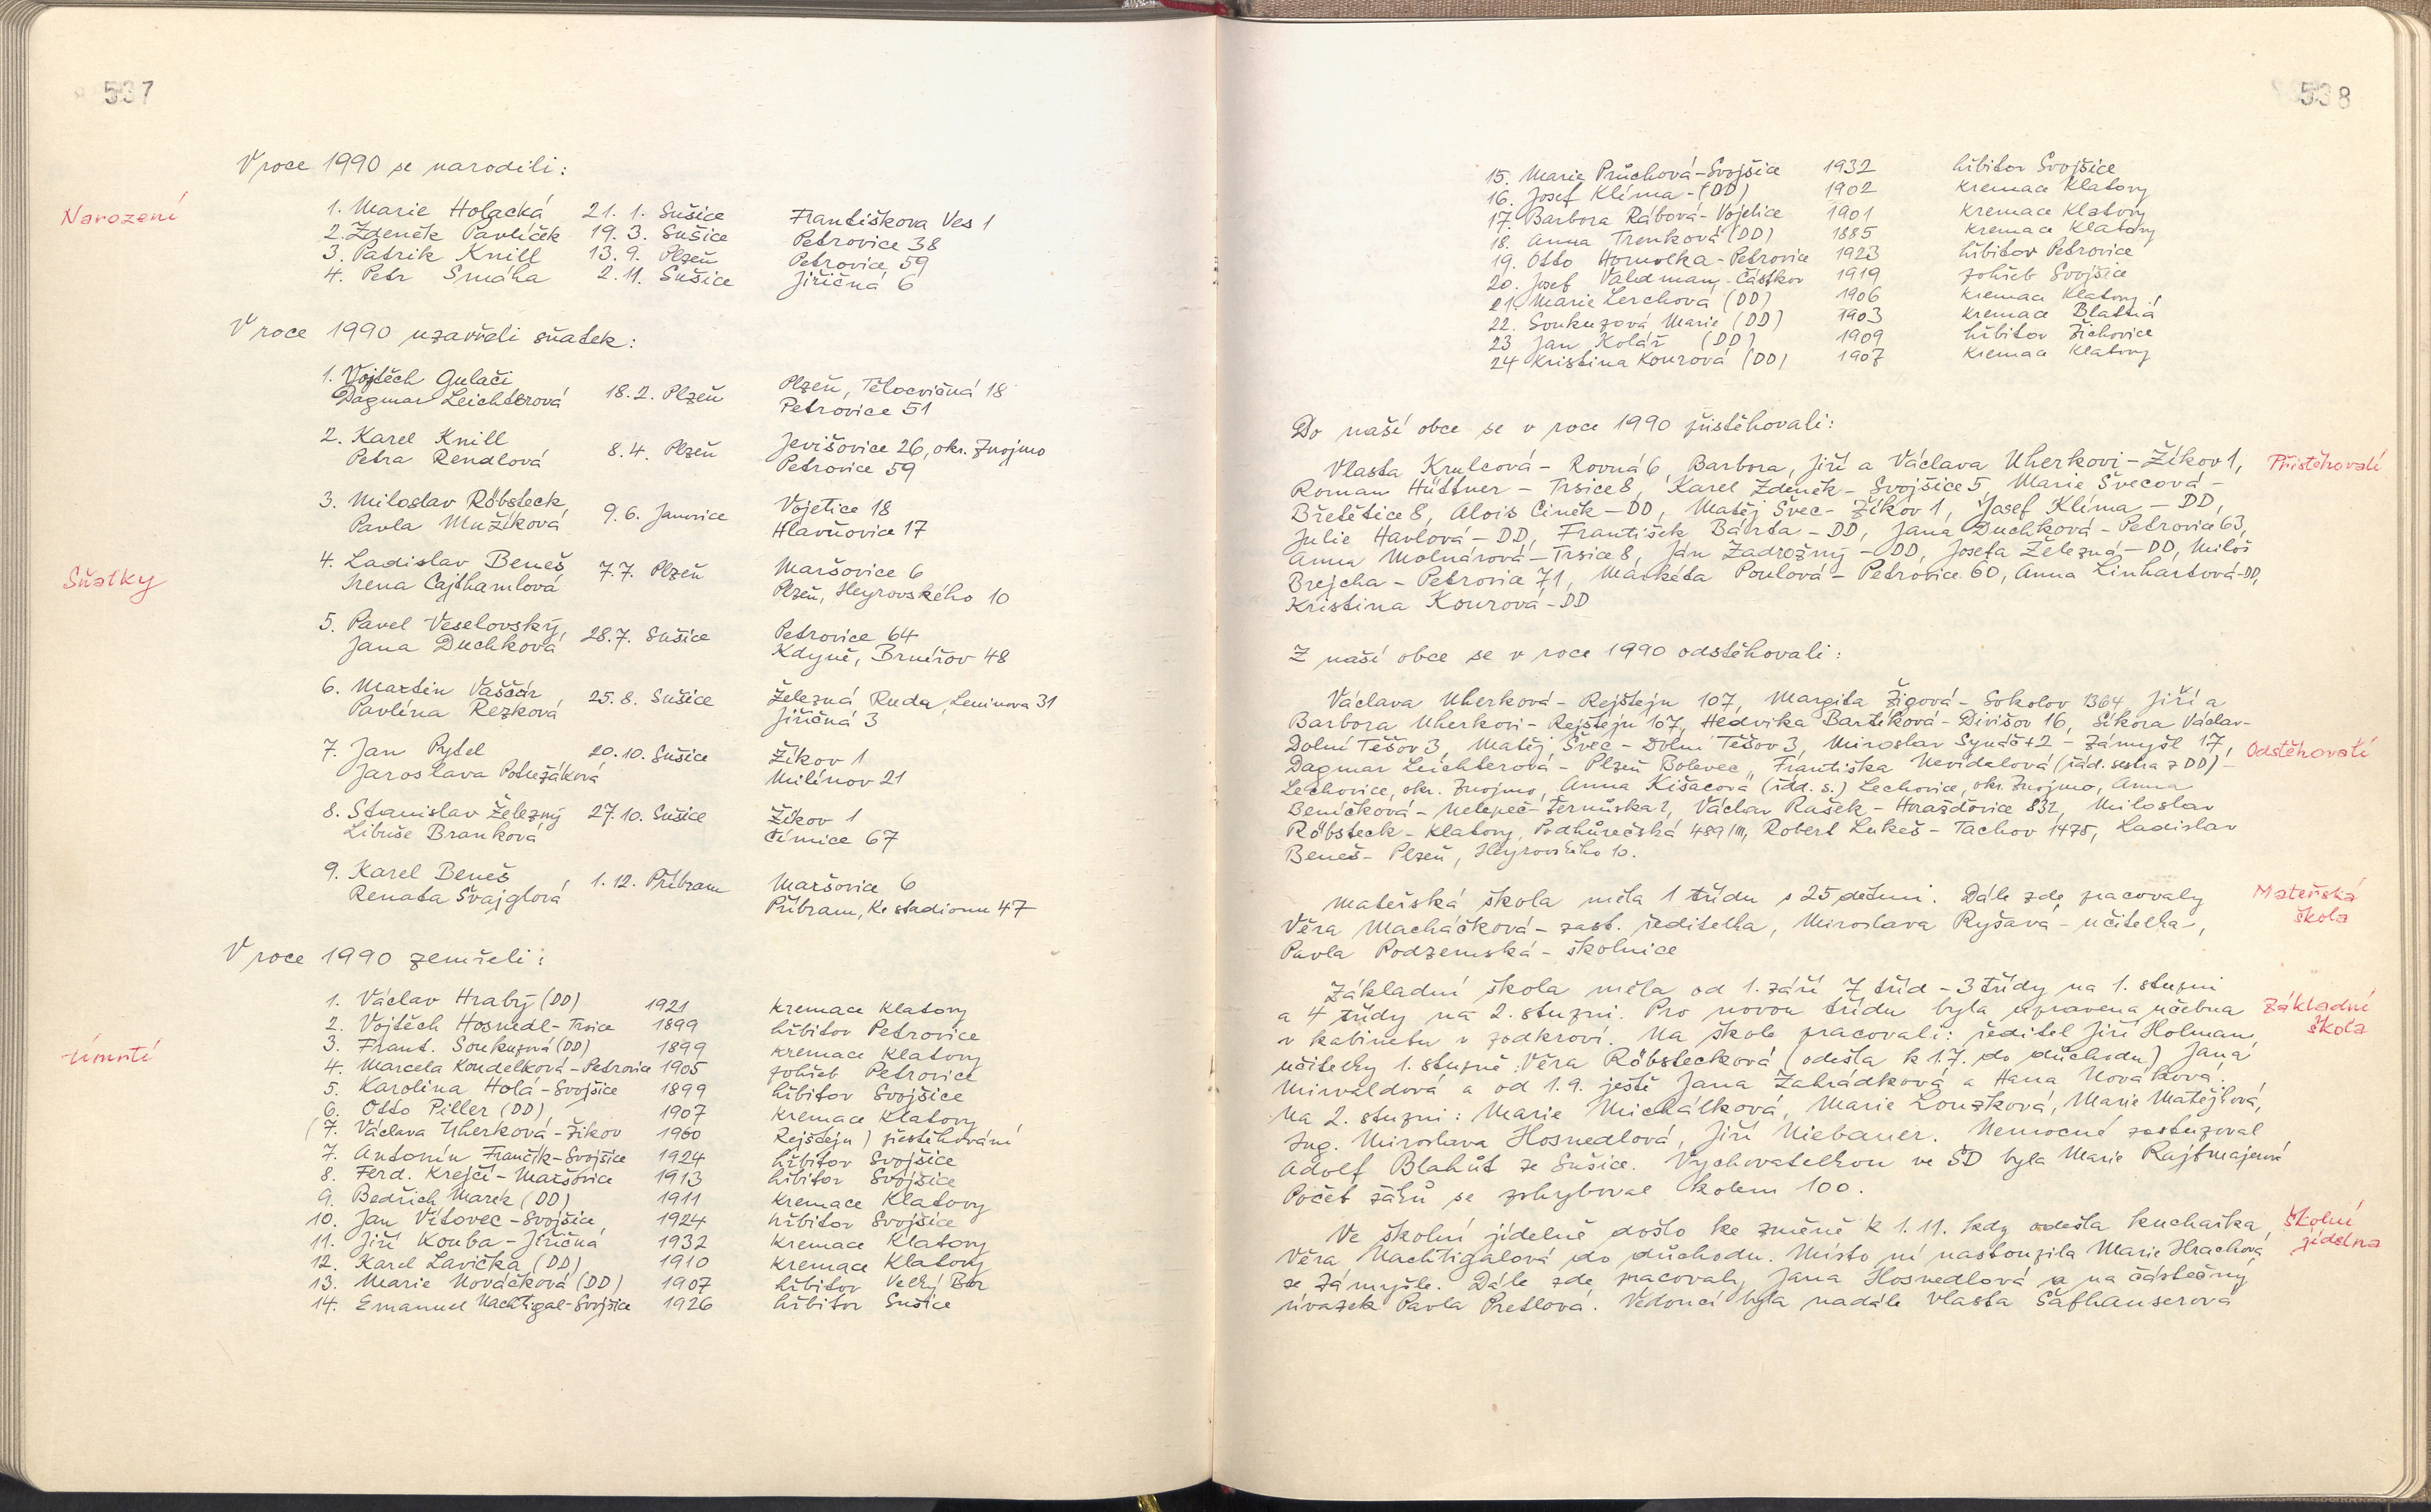 537
V roce 1990 se narodili:
Narození
1. Marie Holacká 21. 1. Sušice Františkova Ves 1
2. Zdeněk Pavlíček 19. 3. Sušice Petrovice 38
3. Patrik Knill 13. 9. Plzeň Petrovice 59
4. Petr Smáha 2. 11. Sušice Jiřičná 6
V roce 1990 uzavřeli sňatek:
1. Vojtěch Gulači
Dagmar Leichterová 18. 2. Plzeň Plzeň, Tělocvičná 18
Petrovice 51
2. Karel Knill
Petra Rendlová 8. 4. Plzeň Jevišovice 26, okr. Znojmo
Petrovice 59
3. Miloslav Röbsteck,
Pavla Mužíková 9. 6. Janovice Vojetice 18
Hlavňovice 17
Sňatky
4. Ladislav Beneš
Irena Cajthamlová 7. 7. Plzeň Maršovice 6
Plzeň, Heyrovského 10
5. Pavel Veselovský,
Jana Duchková 28. 7. Sušice Petrovice 64
Kdyně, Brnířov 48
6. Martin Vaščár,
Pavlína Rezková 25. 8. Sušice Železná Ruda, Leninova 31
Jiřičná 3
7. Jan Pytel 20. 10. Sušice Žíkov 1
Jaroslava Potužáková Milínov 21
8. Stanislav Železný 27. 10. Sušice Žíkov 1
Libuše Branková Čímice 67
9. Karel Beneš, 1. 12. Příbram Maršovice 6
Renata Švajglová Příbram, Ke stadionu 47
V roce 1990 zemřeli:
Úmrtí
1. Václav Hrabý (DD) 1921 kremace Klatovy
2. Vojtěch Hosnedl - Trsice 1899 hřbitov Petrovice
3. Frant. Soukupová (DD) 1899 kremace Klatovy
4. Marcela Koudelková - Petrovice 1905 pohřeb Petrovice
5. Karolina Holá - Svojšice 1899 hřbitov Svojšice
6. Otto Piller (DD) 1907 kremace Klatovy
(7. Václava Uherková - Žíkov 1960 Rejštejn) přestěhování
7. Antonín Frančík - Svojšice 1924 hřbitov Svojšice
8. Ferd. Krejčí - Maršovice 1913 hřbitov Svojšice
9. Bedřich Marek (DD) 1911 kremace Klatovy
10. Jan Vítovec - Svojšice 1924 hřbitov Svojšice
11. Jiří Kouba - Jiřičná 1932 kremace Klatovy
12. Karel Lavička (DD) 1910 kremace Klatovy
13. Marie Nováčková (DD) 1907 hřbitov Velký Bor
14. Emanuel Nachtigal - Svojšice 1926 hřbitov Sušice
538
15. Marie Průchová - Svojšice 1932 hřbitov Svojšice
16. Josef Klíma - (DD) 1902 kremace Klatovy
17. Barbora Rábová - Vojetice 1901 kremace Klatovy
18. Anna Trenková (DD) 1885 kremace Klatovy
19. Otto Homolka - Petrovice 1923 hřbitov Petrovice
20. Josef Valdman, Částkov 1919 pohřeb Svojšice
21. Marie Lerchová (DD) 1906 kremace Klatovy
22. Soukupová Marie (DD) 1903 kremace Blatná
23 Jan Kolář (DD) 1909 hřbitov Žichovice
24 Kristina Kourová (DD) 1907 kremace Klatovy
Do naší obce se v roce 1990 přistěhovali:
Vlasta Krulcová - Rovná 6, Barbora, Jiří a Václava Uherkovi - Žíkov 1, Přistěhovalí
Roman Hüttner - Trsice 8, Karel Zdeněk - Svojšice 5, Marie Švecová -
Břetětice 8, Alois Ciněk - DD, Matěj Švec - Žíkov 1, Josef Klíma - DD,
Julie Havlová - DD, František Bárta - DD, Jana Duchková - Petrovice 63,
Anna Molnárová - Trsice 8, Ján Zadrožný - DD, Josefa Železná - DD, Miloš
Brejcha - Petrovice 71, Markéta Poulová - Petrovice 60, Anna Linhartová - DD,
Kristina Kourová - DD
Z naší obce se v roce 1990 odstěhovali:
Václava Uherková - Rejštejn 107, Margita Žigová - Sokolov 1364, Jiří a
Barbora Uherkovi - Rejštejn 107, Hedvika Bartíková - Divišov 16, Síkora Václav -
Dolní Těšov 3, Matěj Švec - Dolní Těšov 3, Miroslav Synáč + 2 - Zámyšl 17, Odstěhovalí
Dagmar Leichterová - Plzeň Bolevec, Františka Nevidalová (řád. sestra z DD) -
Lechovice, okr. Znojmo, Anna Kišacová (řád. s.) Lechovice, okr. Znojmo, Anna
Beníčková - Nelepeč-Žernůvka 2, Václav Rašek - Horažďovice 832, Miloslav
Röbsteck - Klatovy, Podhůrečská 489/III, Robert Lukeš - Tachov 1475, Ladislav
Beneš - Plzeň, Heyrovského 10.
Mateřská škola měla 1 třídu s 25 dětmi. Dále zde pracovaly Mateřská
škola
Věra Macháčková - zást. ředitelka, Miroslava Ryšavá - učitelka,
Pavla Podzemská - školnice
Základní škola měla od 1. září 7 tříd - 3 třídy na 1. stupni
a 4 třídy na 2. stupni. Pro novou třídu byla upravena učebna Základní
škola
v kabinetu v podkroví. Na škole pracovali: ředitel Jiří Holman,
učitelky 1. stupně: Věra Röbstecková (odešla k 1.7. do důchodu) Jana
Mirvaldová a od 1.9. ještě Jana Zahrádková a Hana Nováková.
Na 2. stupni: Marie Michálková, Marie Louzková, Marie Matějková,
Ing. Miroslava Hosnedlová, Jiří Niebauer. Nemocné zastupoval
Adolf Blahůt ze Sušice. Vychovatelkou ve ŠD byla Marie Rajtmajerová
Počet žáků se pohyboval kolem 100.
Ve školní jídelně došlo ke změně k 1. 11. kdy odešla kuchařka Školní
jídelna
Věra Nachtigalová do důchodu. Místo ní nastoupila Marie Hrachová
ze Zámyšle. Dále zde pracovaly Jana Hosnedlová a na částečný
úvazek Pavla Pretlová. Vedoucí byla nadále Vlasta Šafhauserová